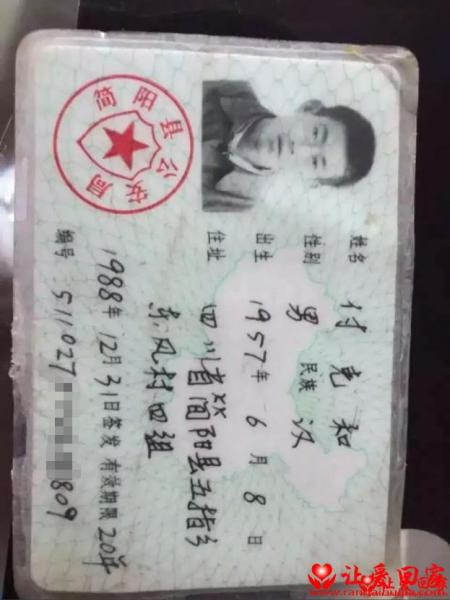 姓名 付克和
性别 男 民族 汉
出生 1957年 6月 8日
住址 四川省简阳县五指乡
东风村四组
1988年12月31日签发 有效期限20年
编号 511027 809
简阳县公安局
让爱回家